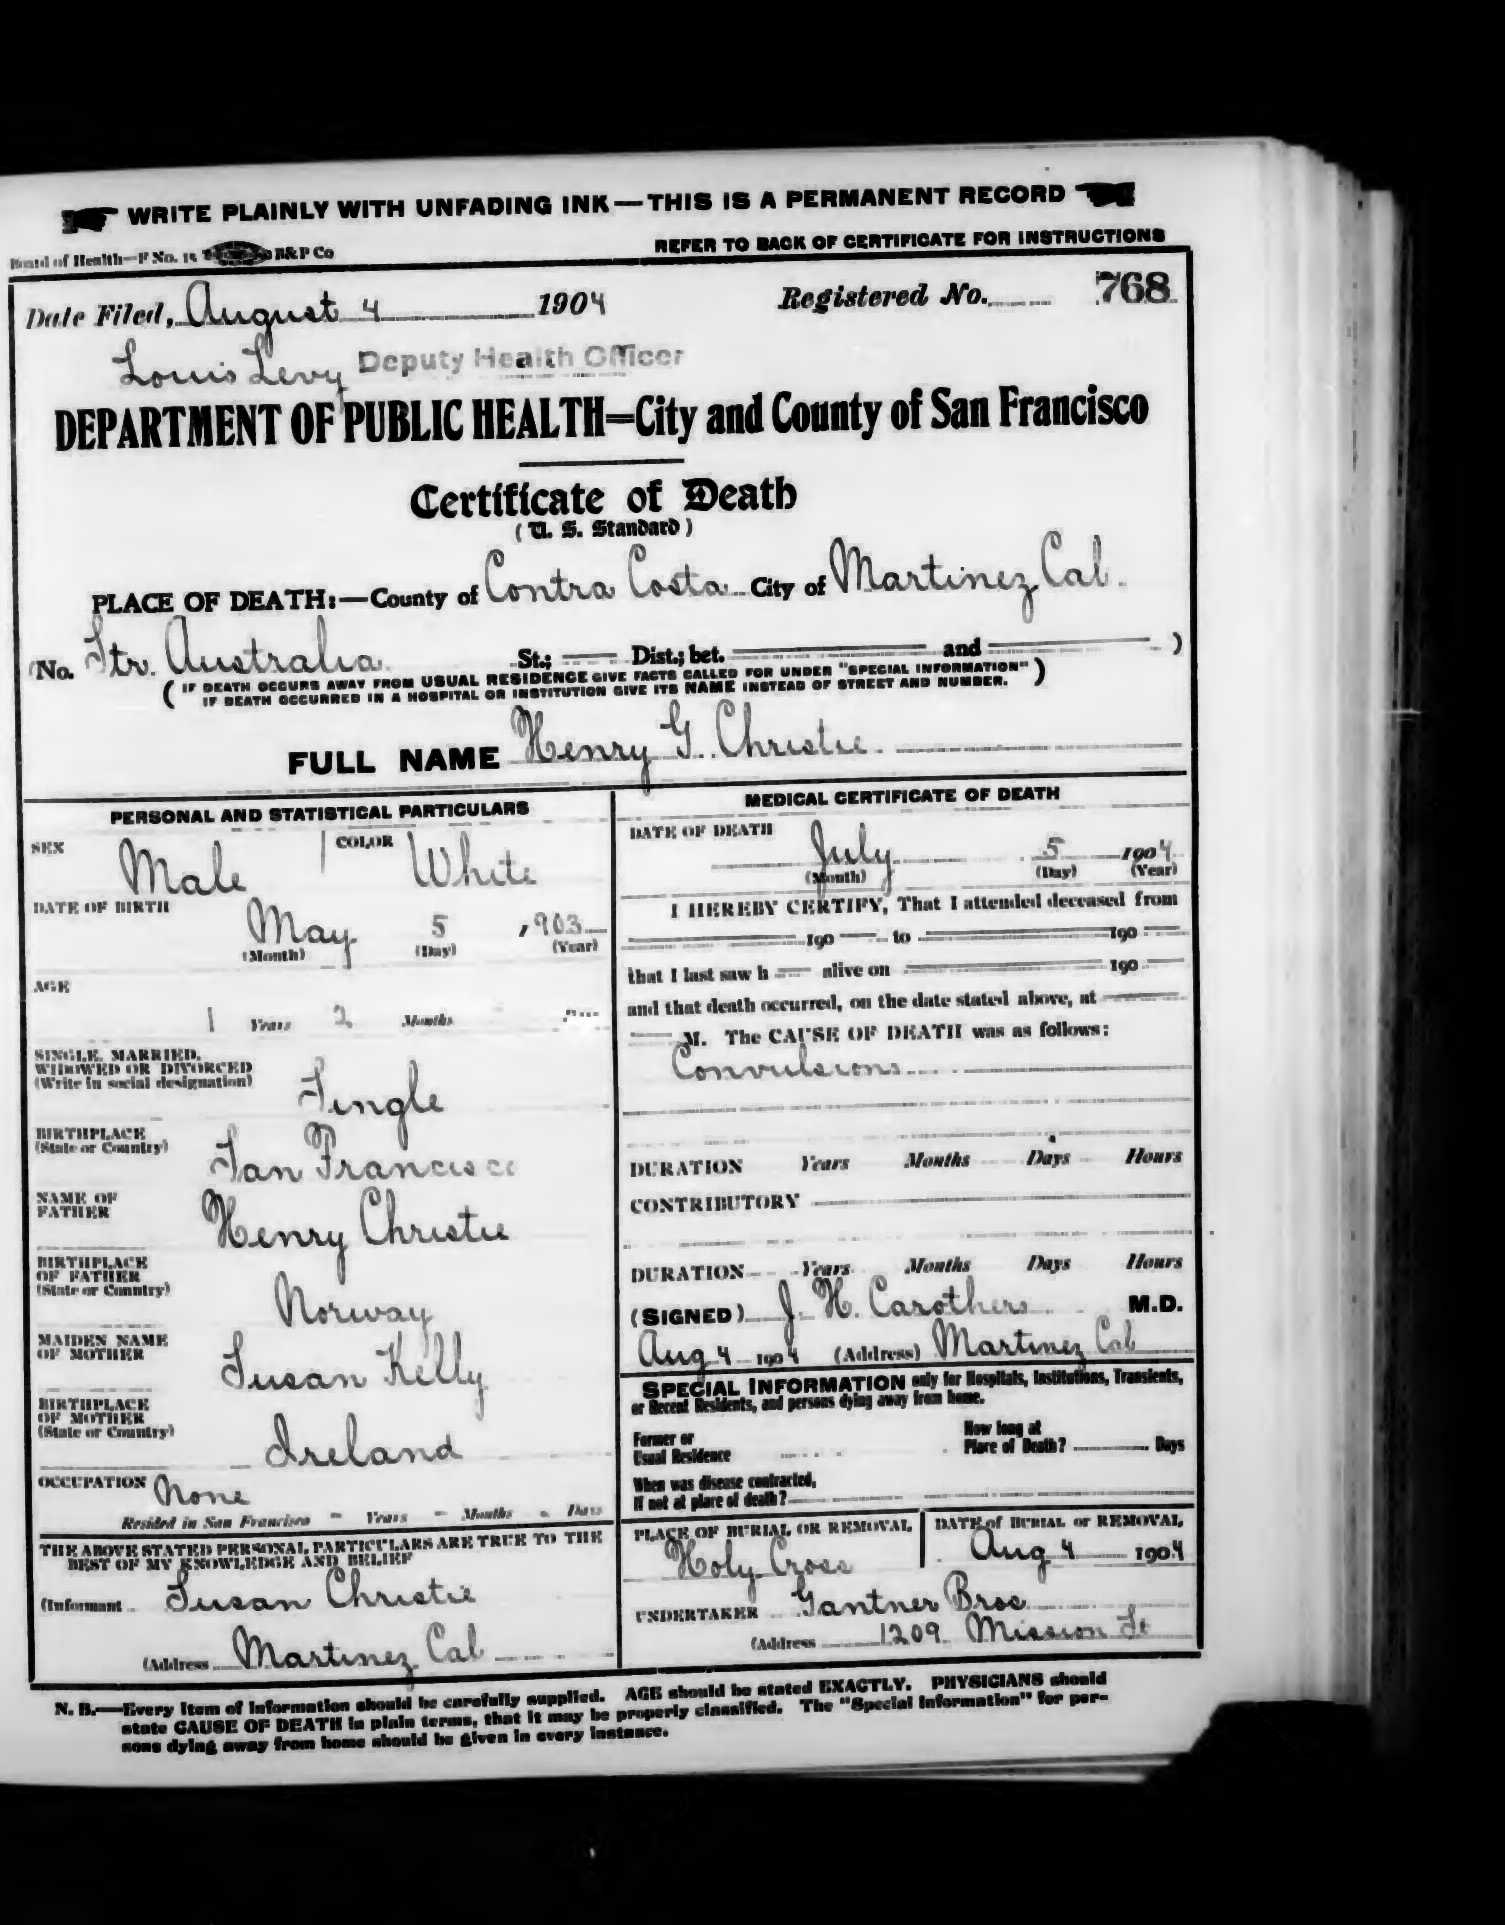 WRITE PLAINLY WITH UNFADING INK—THIS IS A PERMANENT RECORD
Board of Health—F No. 15 B&P Co
REFER TO BACK OF CERTIFICATE FOR INSTRUCTIONS
Date Filed, August 4 1904
Registered No. 768
Louis Levy Deputy Health Officer
DEPARTMENT OF PUBLIC HEALTH=City and County of San Francisco
Certificate of Death
(U. S. Standard)
PLACE OF DEATH:—County of Contra Costa City of Martinez Cal.
(No. Str. Australia St.; Dist.; bet. and )
(IF DEATH OCCURS AWAY FROM USUAL RESIDENCE GIVE FACTS CALLED FOR UNDER "SPECIAL INFORMATION"
IF DEATH OCCURRED IN A HOSPITAL OR INSTITUTION GIVE ITS NAME INSTEAD OF STREET AND NUMBER.)
FULL NAME Henry G. Christie.
PERSONAL AND STATISTICAL PARTICULARS
SEX Male COLOR White
DATE OF BIRTH May 5, 903
(Month) (Day) (Year)
AGE
1 Years 2 Months
SINGLE, MARRIED,
WIDOWED OR DIVORCED
(Write in social designation) Single
BIRTHPLACE
(State or Country) San Francisco
NAME OF
FATHER Henry Christie
BIRTHPLACE
OF FATHER
(State or Country) Norway
MAIDEN NAME
OF MOTHER Susan Kelly
BIRTHPLACE
OF MOTHER
(State or Country) Ireland
OCCUPATION None
Resided in San Francisco - Years - Months - Days
THE ABOVE STATED PERSONAL PARTICULARS ARE TRUE TO THE
BEST OF MY KNOWLEDGE AND BELIEF
(Informant Susan Christie
(Address Martinez Cal
MEDICAL CERTIFICATE OF DEATH
DATE OF DEATH July 5 1904
(Month) (Day) (Year)
I HEREBY CERTIFY, That I attended deceased from
190 to 190
that I last saw h alive on 190
and that death occurred, on the date stated above, at
M. The CAUSE OF DEATH was as follows:
Convulsions
DURATION Years Months Days Hours
CONTRIBUTORY
DURATION Years Months Days Hours
(SIGNED) J. H. Carothers M.D.
Aug 4 1904 (Address) Martinez Cal
SPECIAL INFORMATION only for Hospitals, Institutions, Transients,
or Recent Residents, and persons dying away from home.
Former or
Usual Residence
How long at
Place of Death? Days
When was disease contracted,
If not at place of death?
PLACE OF BURIAL OR REMOVAL
Holy Cross
DATE of BURIAL or REMOVAL
Aug 4 1904
UNDERTAKER Gantner Bros
(Address 1209 Mission St
N. B.—Every item of information should be carefully supplied. AGE should be stated EXACTLY. PHYSICIANS should
state CAUSE OF DEATH in plain terms, that it may be properly classified. The "Special Information" for per-
sons dying away from home should be given in every instance.